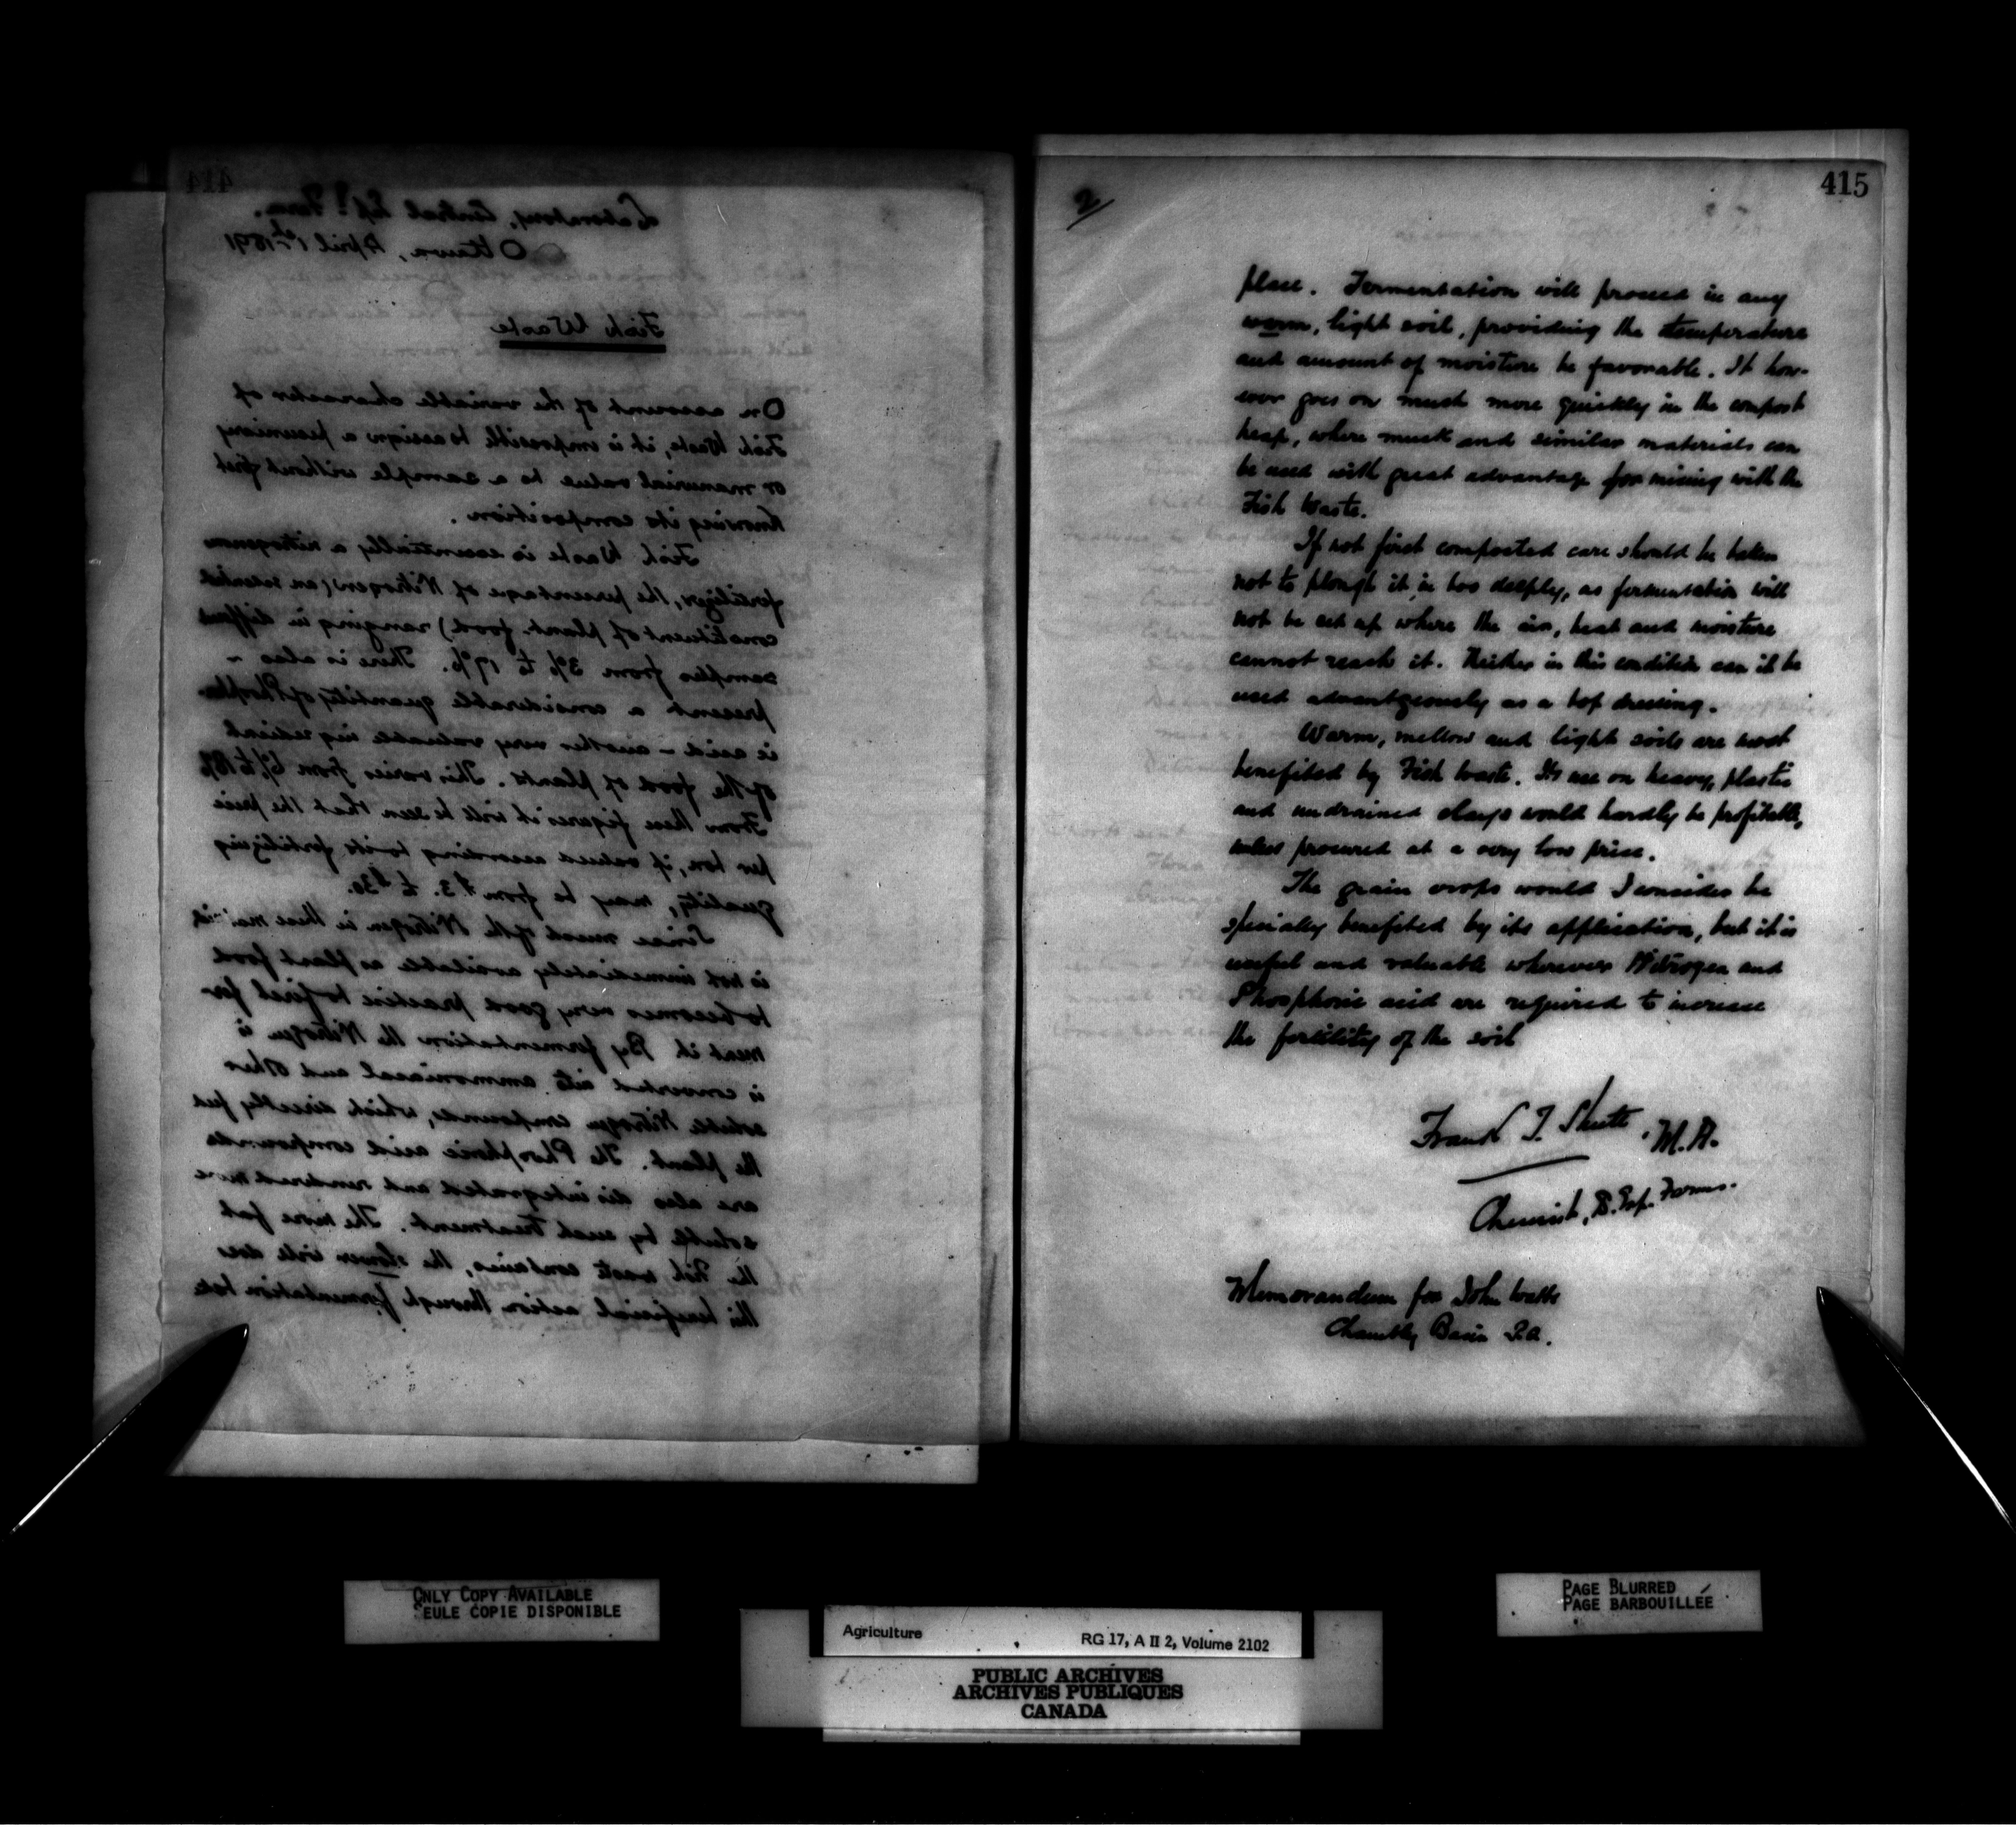 414
Laboratory, Central Exp'l Farm.
Ottawa, April 1st 1891
Fish Waste
On account of the variable character of
Fish Waste, it is impossible to assign a pecuniary
or manurial value to a sample without first
knowing its composition.
Fish Waste is essentially a nitrogenous
fertilizer, the percentage of Nitrogen (an essential
constituent of plant food) ranging in different
samples from 3% to 17%. There is also
present a considerable quantity of Phosphor-
ic acid - another very valuable ingredient
of the food of plants. This varies from 6% to 18%
From these figures it will be seen that the price
per ton, if valued according to its fertilizing
quality, may be from $3. to $30.
Since much of the Nitrogen in these
is not immediately available as plant food
to becomes very good practice to first fer
ment it By fermentation the Nitrogen is
is converted into ammoniacal and other
soluble Nitrogen compounds, which directly feed
the plant. The Phosphoric acid compounds
are also disintegrated and rendered more
soluble by such treatment. The more fat
the Fish waste contains, the slower will does
this beneficial action through fermentation take
2
415
place. Fermentation will proceed in any
warm, light soil, providing the temperature
and amount of moisture be favorable. It how-
ever goes on much more quickly in the compost
heap, where muck and similar materials can
be used with great advantage for mixing with the
Fish Waste.
If not first composted care should be taken
not to plough it in too deeply, as fermentation will
not be set up where the air, heat and moisture
cannot reach it. Neither in this condition can it be
used advantageously as a top dressing.
Warm, mellow and light soils are most
benefited by Fish Waste. Its use on heavy, plastic
and undrained clays would hardly be profitable,
unless procured at a very low price.
The grain crops would I consider be
specially benefited by its application, but it is
useful and valuable wherever Nitrogen and
Phosphoric acid are required to increase
the fertility of the soil
Frank T. Shutt, M.A.
Chemist, D. Exp. Farms.
Memorandum for John Watts
Chambly Basin P.Q.
ONLY COPY AVAILABLE
SEULE COPIE DISPONIBLE
PAGE BLURRED
PAGE BARBOUILLÉE
Agriculture RG 17, A II 2, Volume 2102
PUBLIC ARCHIVES
ARCHIVES PUBLIQUES
CANADA